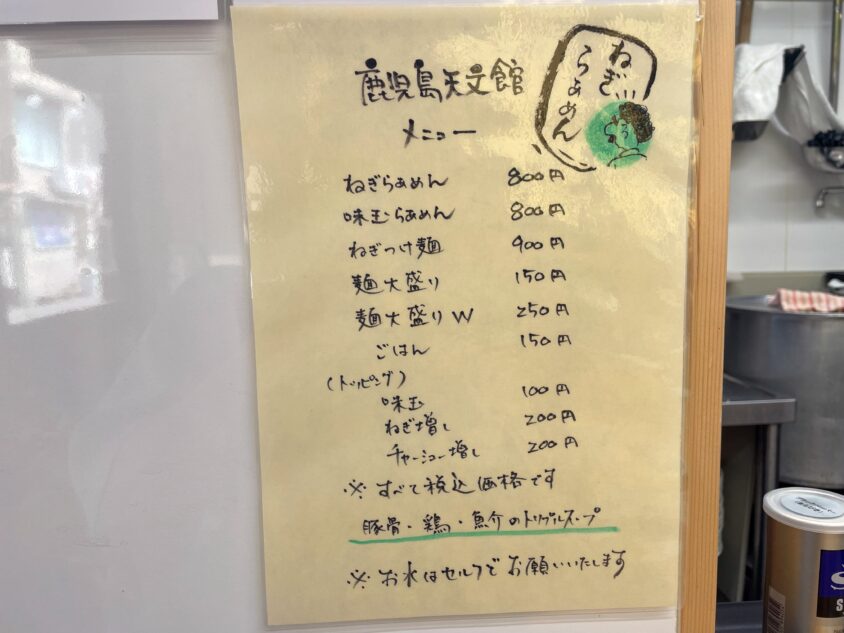 ねぎ
らぁめん
鹿児島天文館
メニュー
ねぎらぁめん 800円
味玉らぁめん 800円
ねぎつけ麺 900円
麺大盛り 150円
麺大盛りW 250円
ごはん 150円
(トッピング)
味玉 100円
ねぎ増し 200円
チャーシュー増し 200円
※すべて税込価格です
豚骨・鶏・魚介のトリプルスープ
※お水はセルフでお願いいたします
S